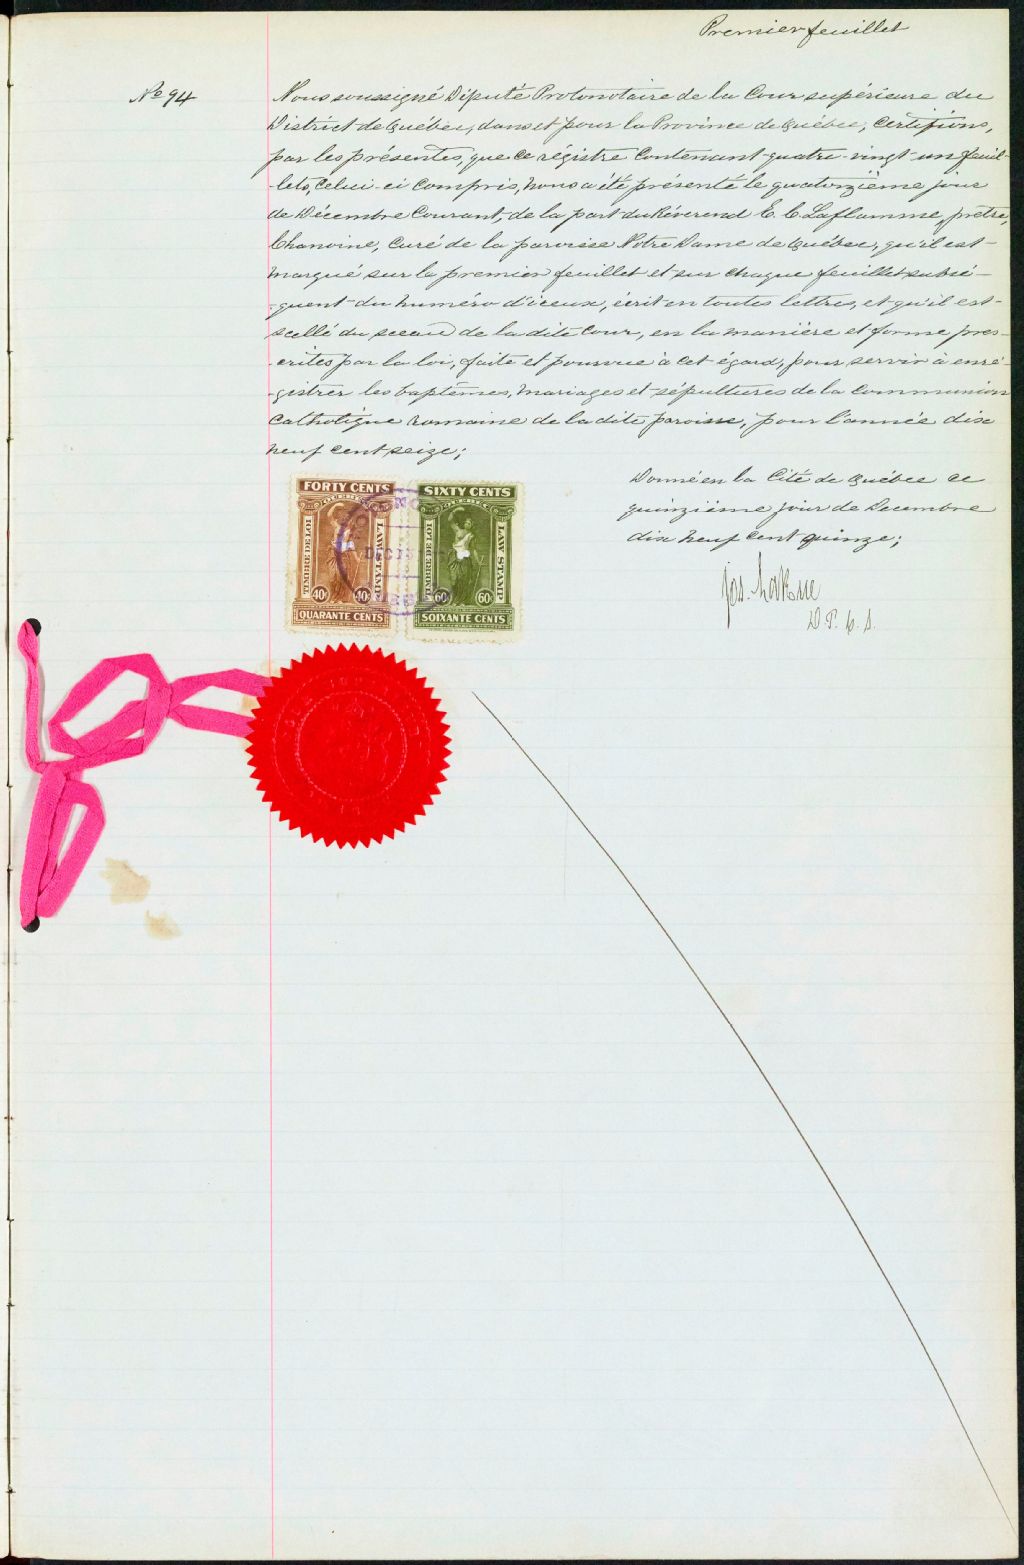 Premier feuillet
No 94
Nous soussigné Député Protonotaire de la Cour supérieure du
District de Québec, dans et pour la Province de Québec, Certifions,
par les présentes, que ce régistre Contenant quatre-vingt-un feuil-
-lets, Celui-ci Compris, nous a été présenté le quatorzième jour
de Décembre Courant, de la part du Révérend E. C. Laflamme, prêtre,
Chanoine, Curé de la paroisse Notre Dame de Québec, qu'il est
marqué sur le premier feuillet et sur chaque feuillet subsé-
-quent du numéro d'iceux, écrit en toutes lettres, et qu'il est
scellé du sceau de la dite Cour, en la manière et forme pres-
-crites par la loi, faite et pourvue à cet égard, pour servir à enré-
-gistrer les baptêmes, mariages et sépultures de la Communion
Catholique romaine de la dite paroisse, pour l'année dix
neuf cent seize;
Donné en la Cité de Québec ce
quinzième jour de Décembre
dix neuf cent quinze;
Jos. LaRue
D. P. C. S.
FORTY CENTS
QUEBEC
TIMBRE DE LOI
LAW STAMP
40c
40c
QUARANTE CENTS
SIXTY CENTS
QUEBEC
TIMBRE DE LOI
LAW STAMP
60c
60c
SOIXANTE CENTS